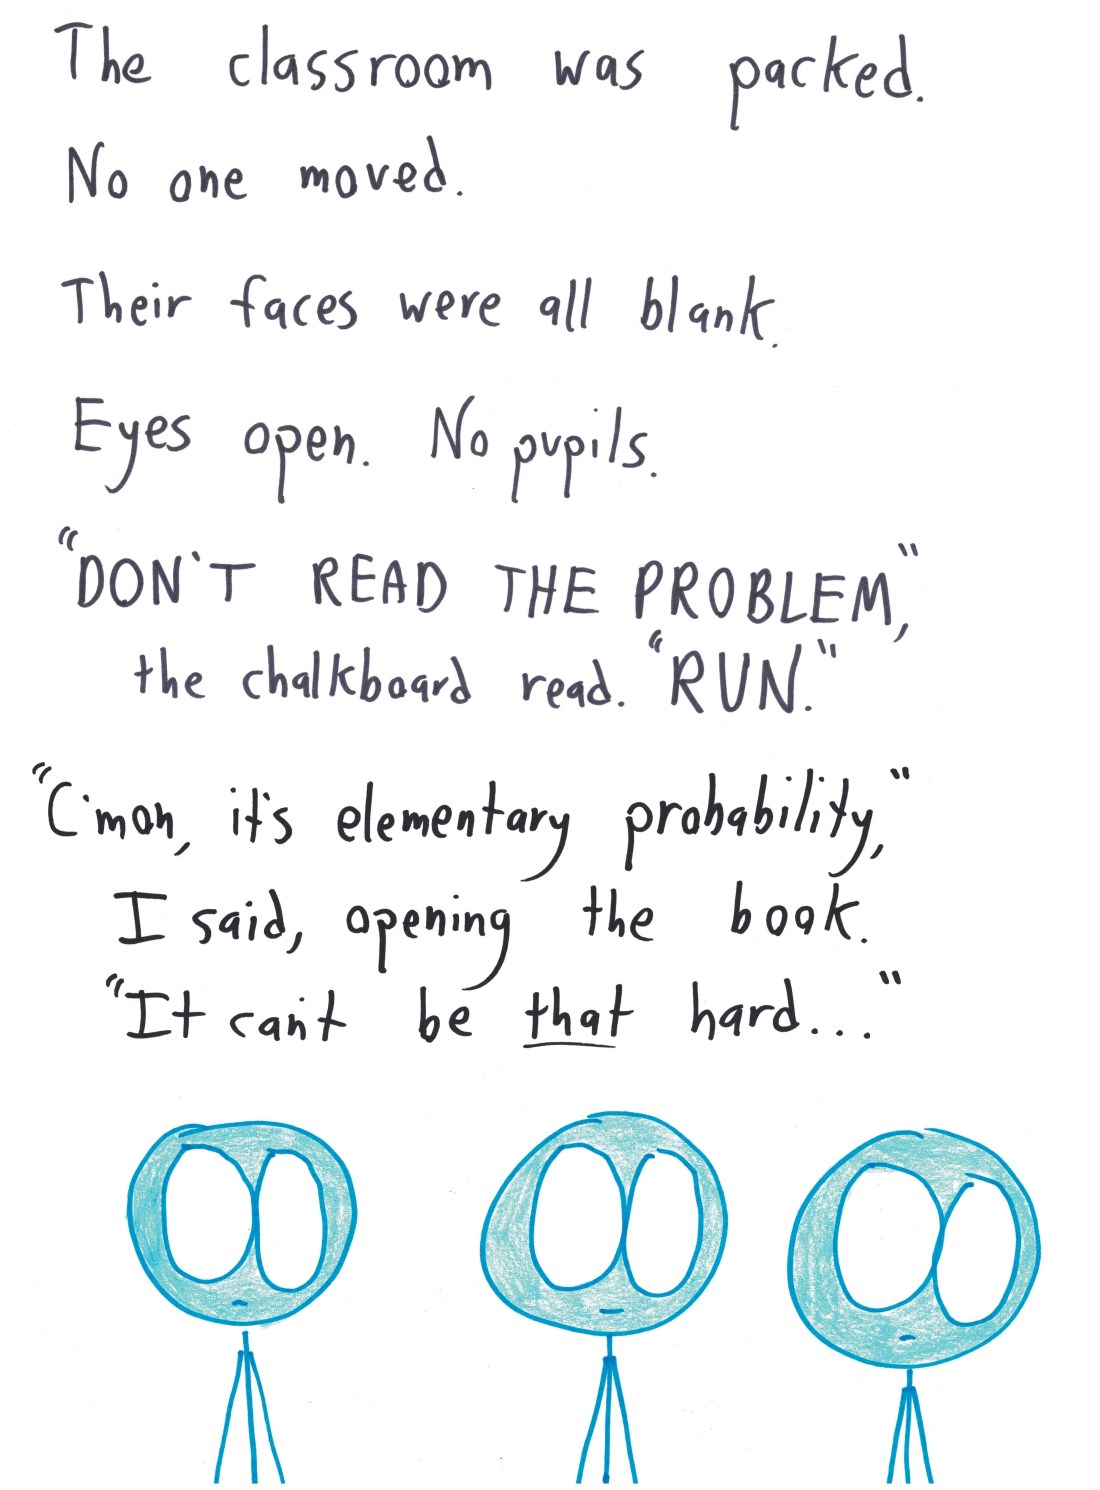 The classroom was packed.
No one moved.
Their faces were all blank.
Eyes open. No pupils.
"DON'T READ THE PROBLEM,"
the chalkboard read. "RUN."
"C'mon, it's elementary probability,"
I said, opening the book.
"It can't be that hard..."